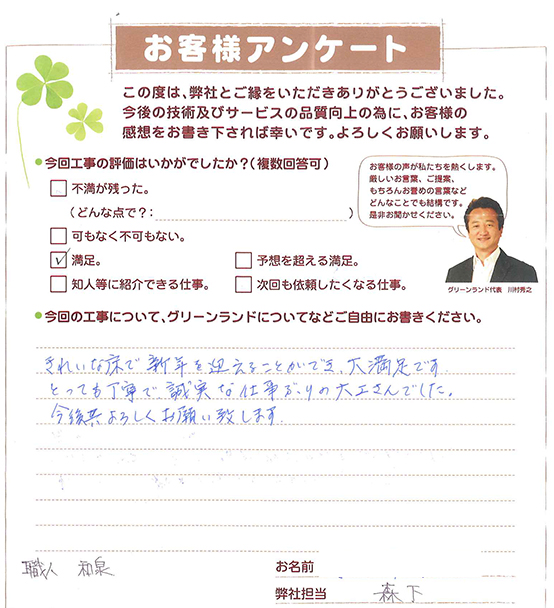 お客様アンケート
この度は、弊社とご縁をいただきありがとうございました。
今後の技術及びサービスの品質向上の為に、お客様の
感想をお書き下されば幸いです。よろしくお願いします。
●今回工事の評価はいかがでしたか?(複数回答可)
不満が残った。
(どんな点で?: )
可もなく不可もない。
満足。
予想を超える満足。
知人等に紹介できる仕事。
次回も依頼したくなる仕事。
お客様の声が私たちを熱くします。
厳しいお言葉、ご提案、
もちろんお誉めの言葉など
どんなことでも結構です。
是非お聞かせください。
グリーンランド代表 川村秀之
●今回の工事について、グリーンランドについてなどご自由にお書きください。
きれいな床で新年を迎えることができ、大満足です。
とっても丁寧で、誠実な仕事ぶりの大工さんでした。
今後共よろしくお願い致します。
職人 和泉
お名前
弊社担当 森下